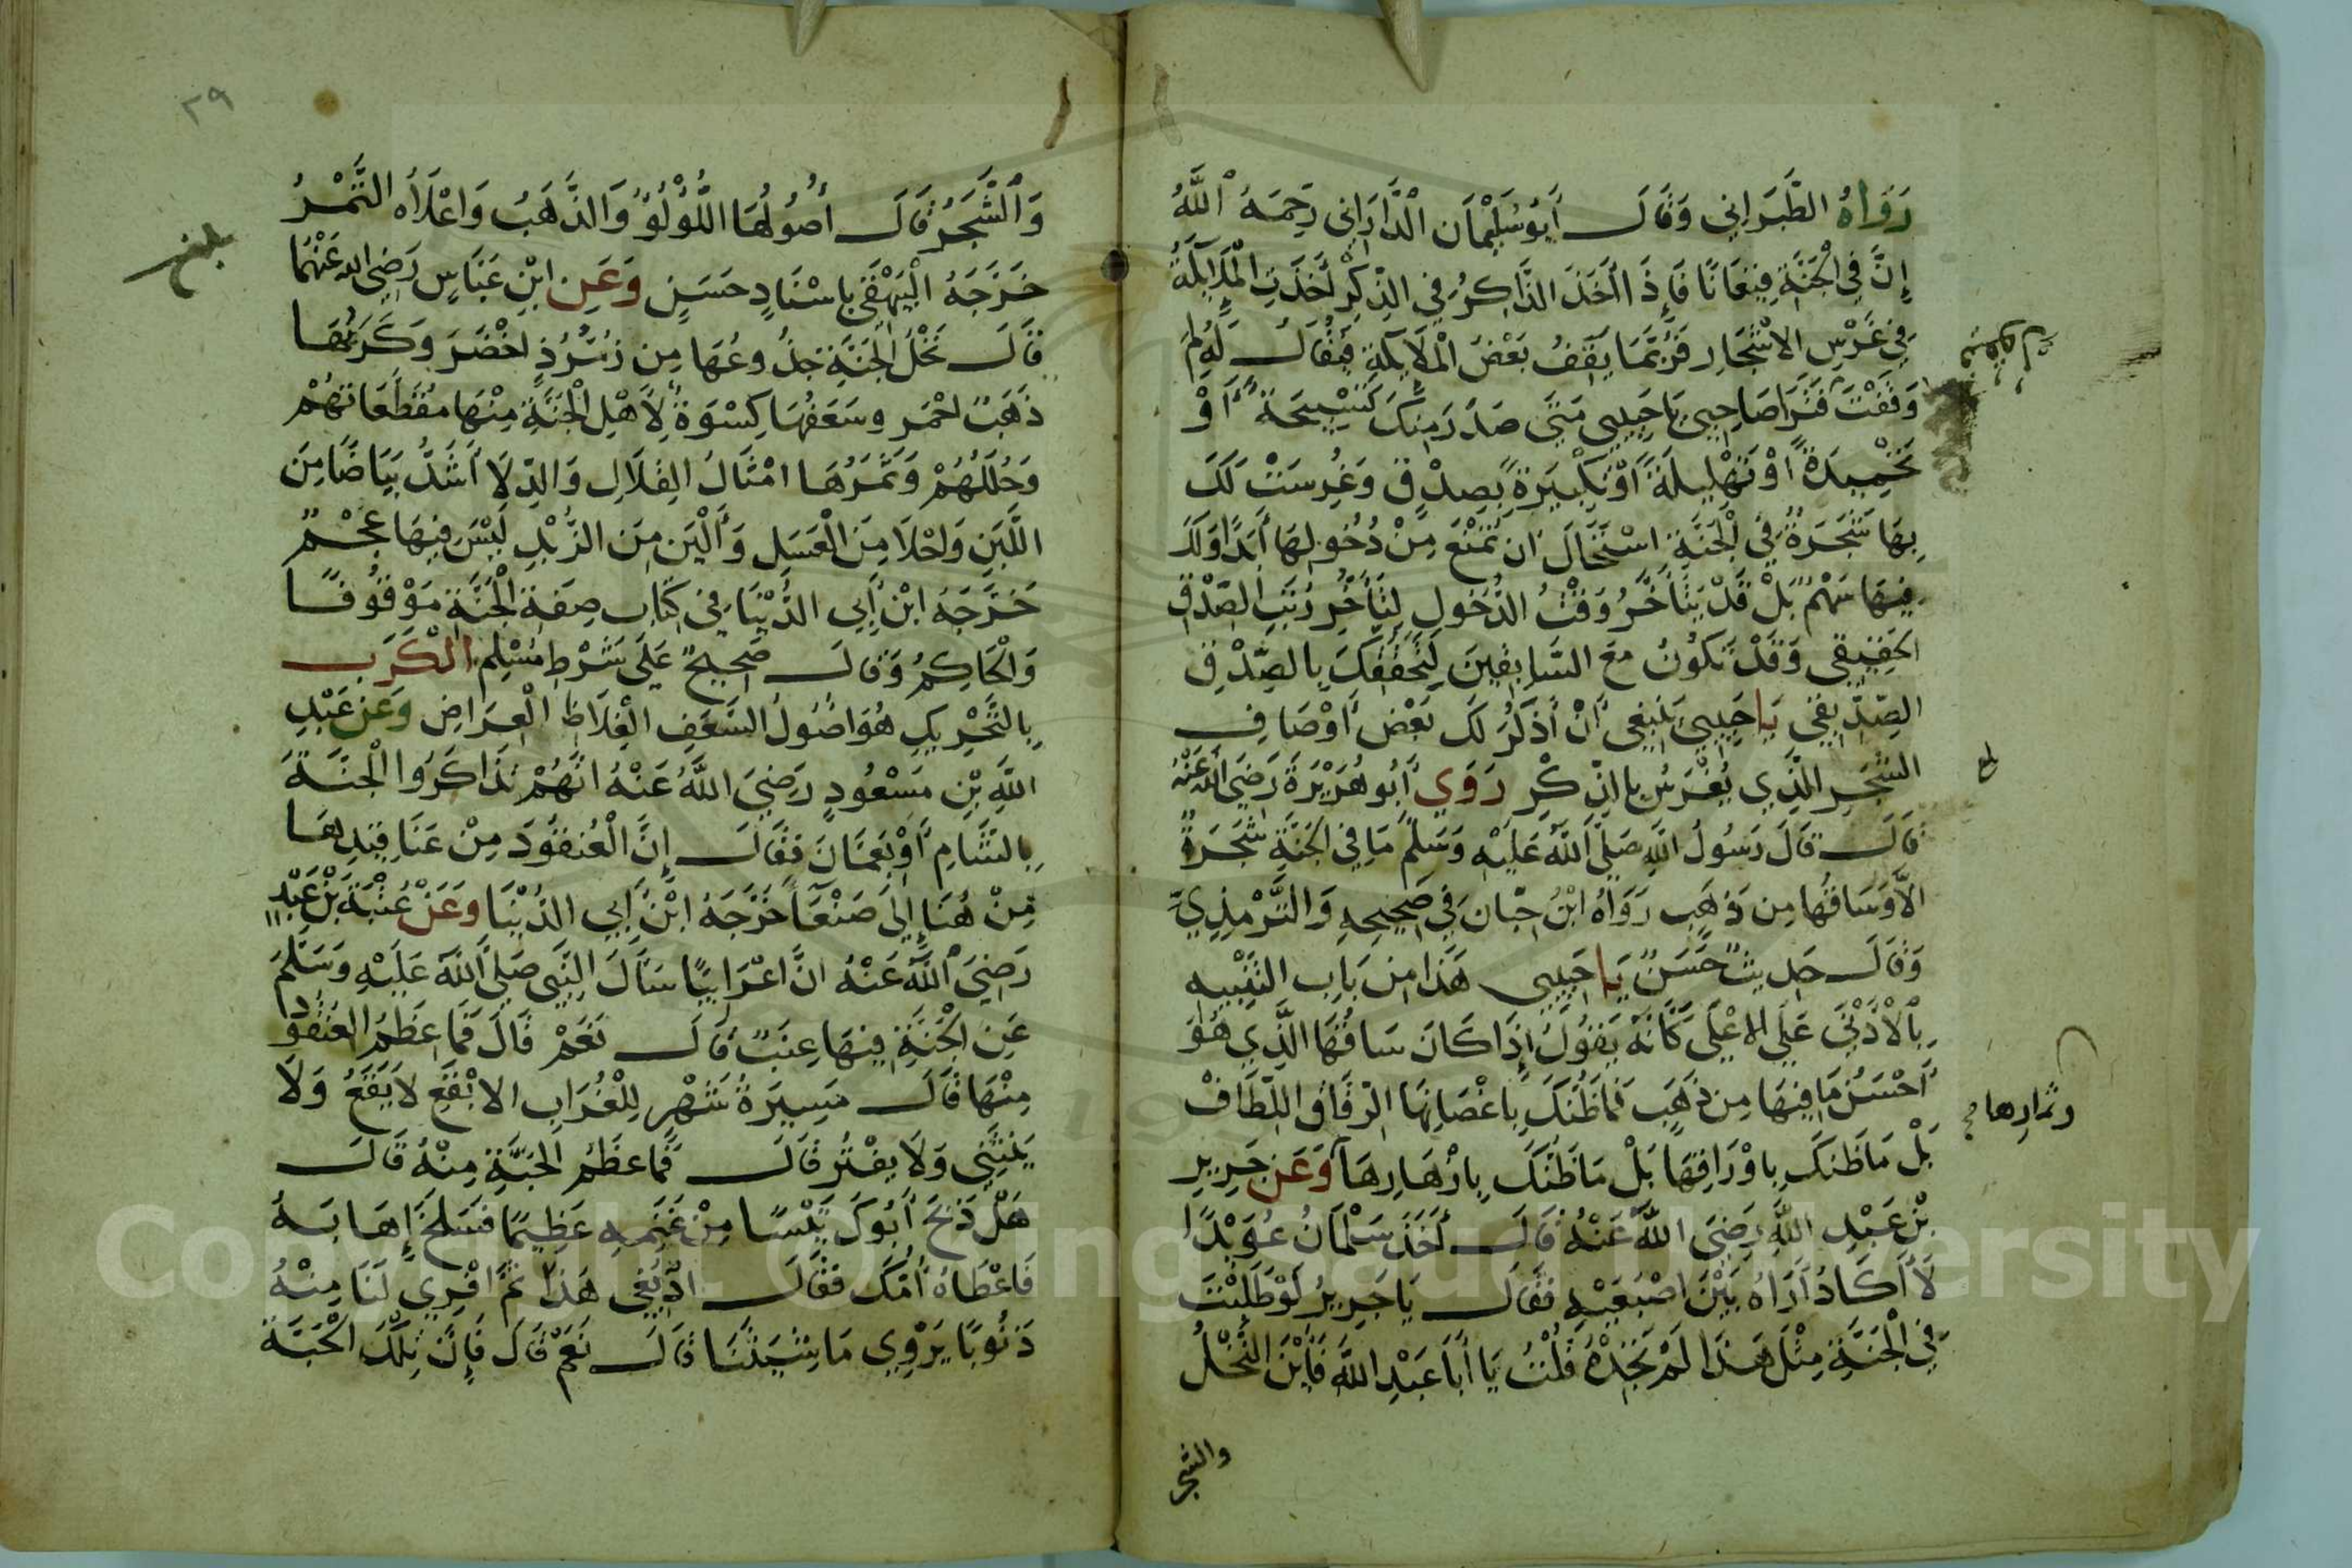 رَوَاهُ الطَّبَرَانِي وَقَالَ أَبُو سُلَيْمَان الدَّارَانِي رَحِمَهُ اللَّهُ
إِنَّ فِي الْجَنَّةِ قِيعَانًا فَإِذَ اأَخَذَ الذَّاكِرُ فِي الذِّكْرِ أَخَذَتِ الْمَلَائِكَةُ
فِي غَرْسِ الاشْجَارِ فَرُبَّمَا يَقِفُ بَعْضُ الْمَلَائِكَةِ فَيُقَالُ لَهُ لِمَ
وَقَفْتَ فَتَرَ صَاحِبِي يَا حَبِيبِي مَتَى صَدَرَ مِنْكَ تَسْبِيحَةً أَوْ
تَحْمِيدَةً أَوْ تَهْلِيلَةً أَوْ تَكْبِيرَةً بِصِدْقٍ وَغُرِسَتْ لَكَ
بِهَا شَجَرَةٌ فِي الْجَنَّةِ اسْتَحَالَ ان تُمْنَعَ مِنْ دُخُولِهَا أَبَدًا وَلَكَ
فِيهَا سَهْمٌ بَلْ قَدْ يَتَأَخَّرُ وَقْتُ الدُّخُولِ لِتَأَخُّرِ رُتَبِ الصِّدْقِ
الحَقِيقِي وَقَدْ تَكُونُ مَعَ السَّابِقِينَ لِتَحَقُّقِكَ بِالصِّدْقِ
الصِّدِّيقِي يَا حَبِيبِي يَنْبَغِي أَنْ أَذْكُرَ لَكَ بَعْضَ أَوْصَافِ
الشَّجَرِ الَّذِي يُغْرَسُ بِالذِّكْرِ رَوَي أَبُو هُرَيْرَةَ رَضِيَ اللَّهُ عَنْهُ
قَالَ قَالَ رَسُولُ اللَّهِ صَلَّى اللَّهُ عَلَيْهِ وَسَلَّمَ مَا فِي الجَنَّةِ شَجَرَةٌ
الاَّ وَسَاقُهَا مِن ذَهَبٍ رَوَاهُ ابْنُ حِبَّان فِي صَحِيحِهِ وَالتِّرْمِذِيِّ
وَقَالَ حَدِيثٌ حَسَنٌ يَا حَبِيبِي هَذَا مِن بَابِ التَّنْبِيهِ
بِالْأَدْنَى عَلَى الاعْلَى كَأَنَّهُ يَقُولُ إِذَا كَانَ سَاقُهَا الَّذِي هُوَ
أَحْسَنُ مَا فِيهَا مِن ذَهَبٍ فَمَا ظَنُّكَ بِاغْصَانِهَا الرِّقَاقِ اللِّطَافْ
وثمارها
بَلْ مَا ظَنُّكَ بِاوْرَاقِهَا بَلْ مَا ظَنُّكَ بِازْهَارِهَا وَعَن جَرِيرِ
بْنِ عَبْدِ اللَّهِ رَضِيَ اللَّهُ عَنْهُ قَالَ أَخَذَ سَلْمَانُ عُوَيْدًا
لَا أَكَادُ أَرَاهُ بَيْنَ اصْبَعَيْهِ فَقَالَ يَا جَرِيرُ لَوْ طَلَبْتَ
فِي الْجَنَّةِ مِثْلَ هَذَا لَمْ تَجِدْهُ قُلْتُ يَا أَبَا عَبْدِ اللَّهِ فَأَيْنَ النَّخْلُ
والشجر
٢٩
وَالشَّجَرُ قَالَ أُصُولُهَا اللُّؤْلُؤُ وَالذَّهَبُ وَاعْلَاهُ الثَّمْرُ
بلغ
خَرَّجَهُ الْبَيْهَقِي بِاسْنَادٍ حَسَنٍ وَعَنِ ابْنِ عَبَّاسٍ رَضِيَ اللَّه عَنْهُمَا
قَالَ نَخْلُ الْجَنَّةِ جُذُوعُهَا مِن زُمُرُّذٍ اخْضَرَ وَكَرَبُهَا
ذَهَبٌ احْمَر وسَعَفُهَا كِسْوَةٌ لِأَهْلِ الْجَنَّةِ مِنْهَا مُقَطَّعَاتُهُمْ
وَحُلَلُهُمْ وَثَمَرُهَا امْثَالَ القِلَالِ وَالدِّلَا أَشَدُّ بَيَاضًا مِنَ
اللَّبَنِ وَاحْلَا مِنَ الْعَسَلِ وَأَلْيَن مِنَ الزُّبْدِ لَيْسَ فِيهَا عَجْمٌ
خَرَّجَهُ ابْنُ أَبِي الدُّنْيَا فِي كِتَابِ صِفَةِ الْجَنَّةِ مَوْقُوفًا
وَالْحَاكِمُ وَقَالَ صَحِيحٌ عَلَى شَرْطِ مُسْلِمٍ الْكَرَب
بِالتَّحْرِيكِ هُوَ اصُولُ السَّعَفِ الْغِلَاظِ الْعِرَاضِ وَعَن عَبْدِ
اللَّهِ بْنِ مَسْعُودٍ رَضِيَ اللَّهُ عَنْهُ انَّهُمْ تَذَاكَرُوا الْجَنَّةَ
بِالشَّامِ أَوْ بِعَمَّانَ فَقَالَ إِنَّ الْعُنقُودَ مِنْ عَنَاقِيدِهَا
مِنْ هُنَا إِلَى صَنْعَا خَرَّجَهُ ابْنُ أَبِي الدُّنْيَا وَعَنْ عُتْبَةَ بْنِ عَبْدٍ
رَضِيَ اللَّهُ عَنْهُ انَّ اعْرَابِيًّا سَأَلَ النَّبِيَّ صَلَّى اللَّهُ عَلَيْهِ وَسَلَّمَ
عَنِ الْجَنَّةِ فِيهَا عِنَبٌ قَالَ نَعَمْ قَالَ فَمَا عِظَمُ العُنْقُودِ
مِنْهَا قَالَ مَسِيرَةُ شَهْرٍ لِلْغُرَابِ الابْقَعِ لَا يَقَعُ وَلَا
يَنْثَنِي وَلَا يَفْتُر قَالَ فَمَا عِظَمُ الحَبَّةِ مِنْهُ قَالَ
هَلْ ذَبَحَ أَبُوكَ تَيْسًا مِنْ غَنَمِهِ عَظِيمًا فَسَلَخَ إِهَابَهُ
فَاعْطَاهُ أُمَّكَ فَقَالَ ادْبُغِي هَذَا ثُمَّ افْرِي لَنَا مِنْهُ
ذَنُوبًا يَرْوِي مَاشِيَتَنَا قَالَ نَعَمْ قَالَ فَإِنَّ تِلْكَ الْحَبَّةَ